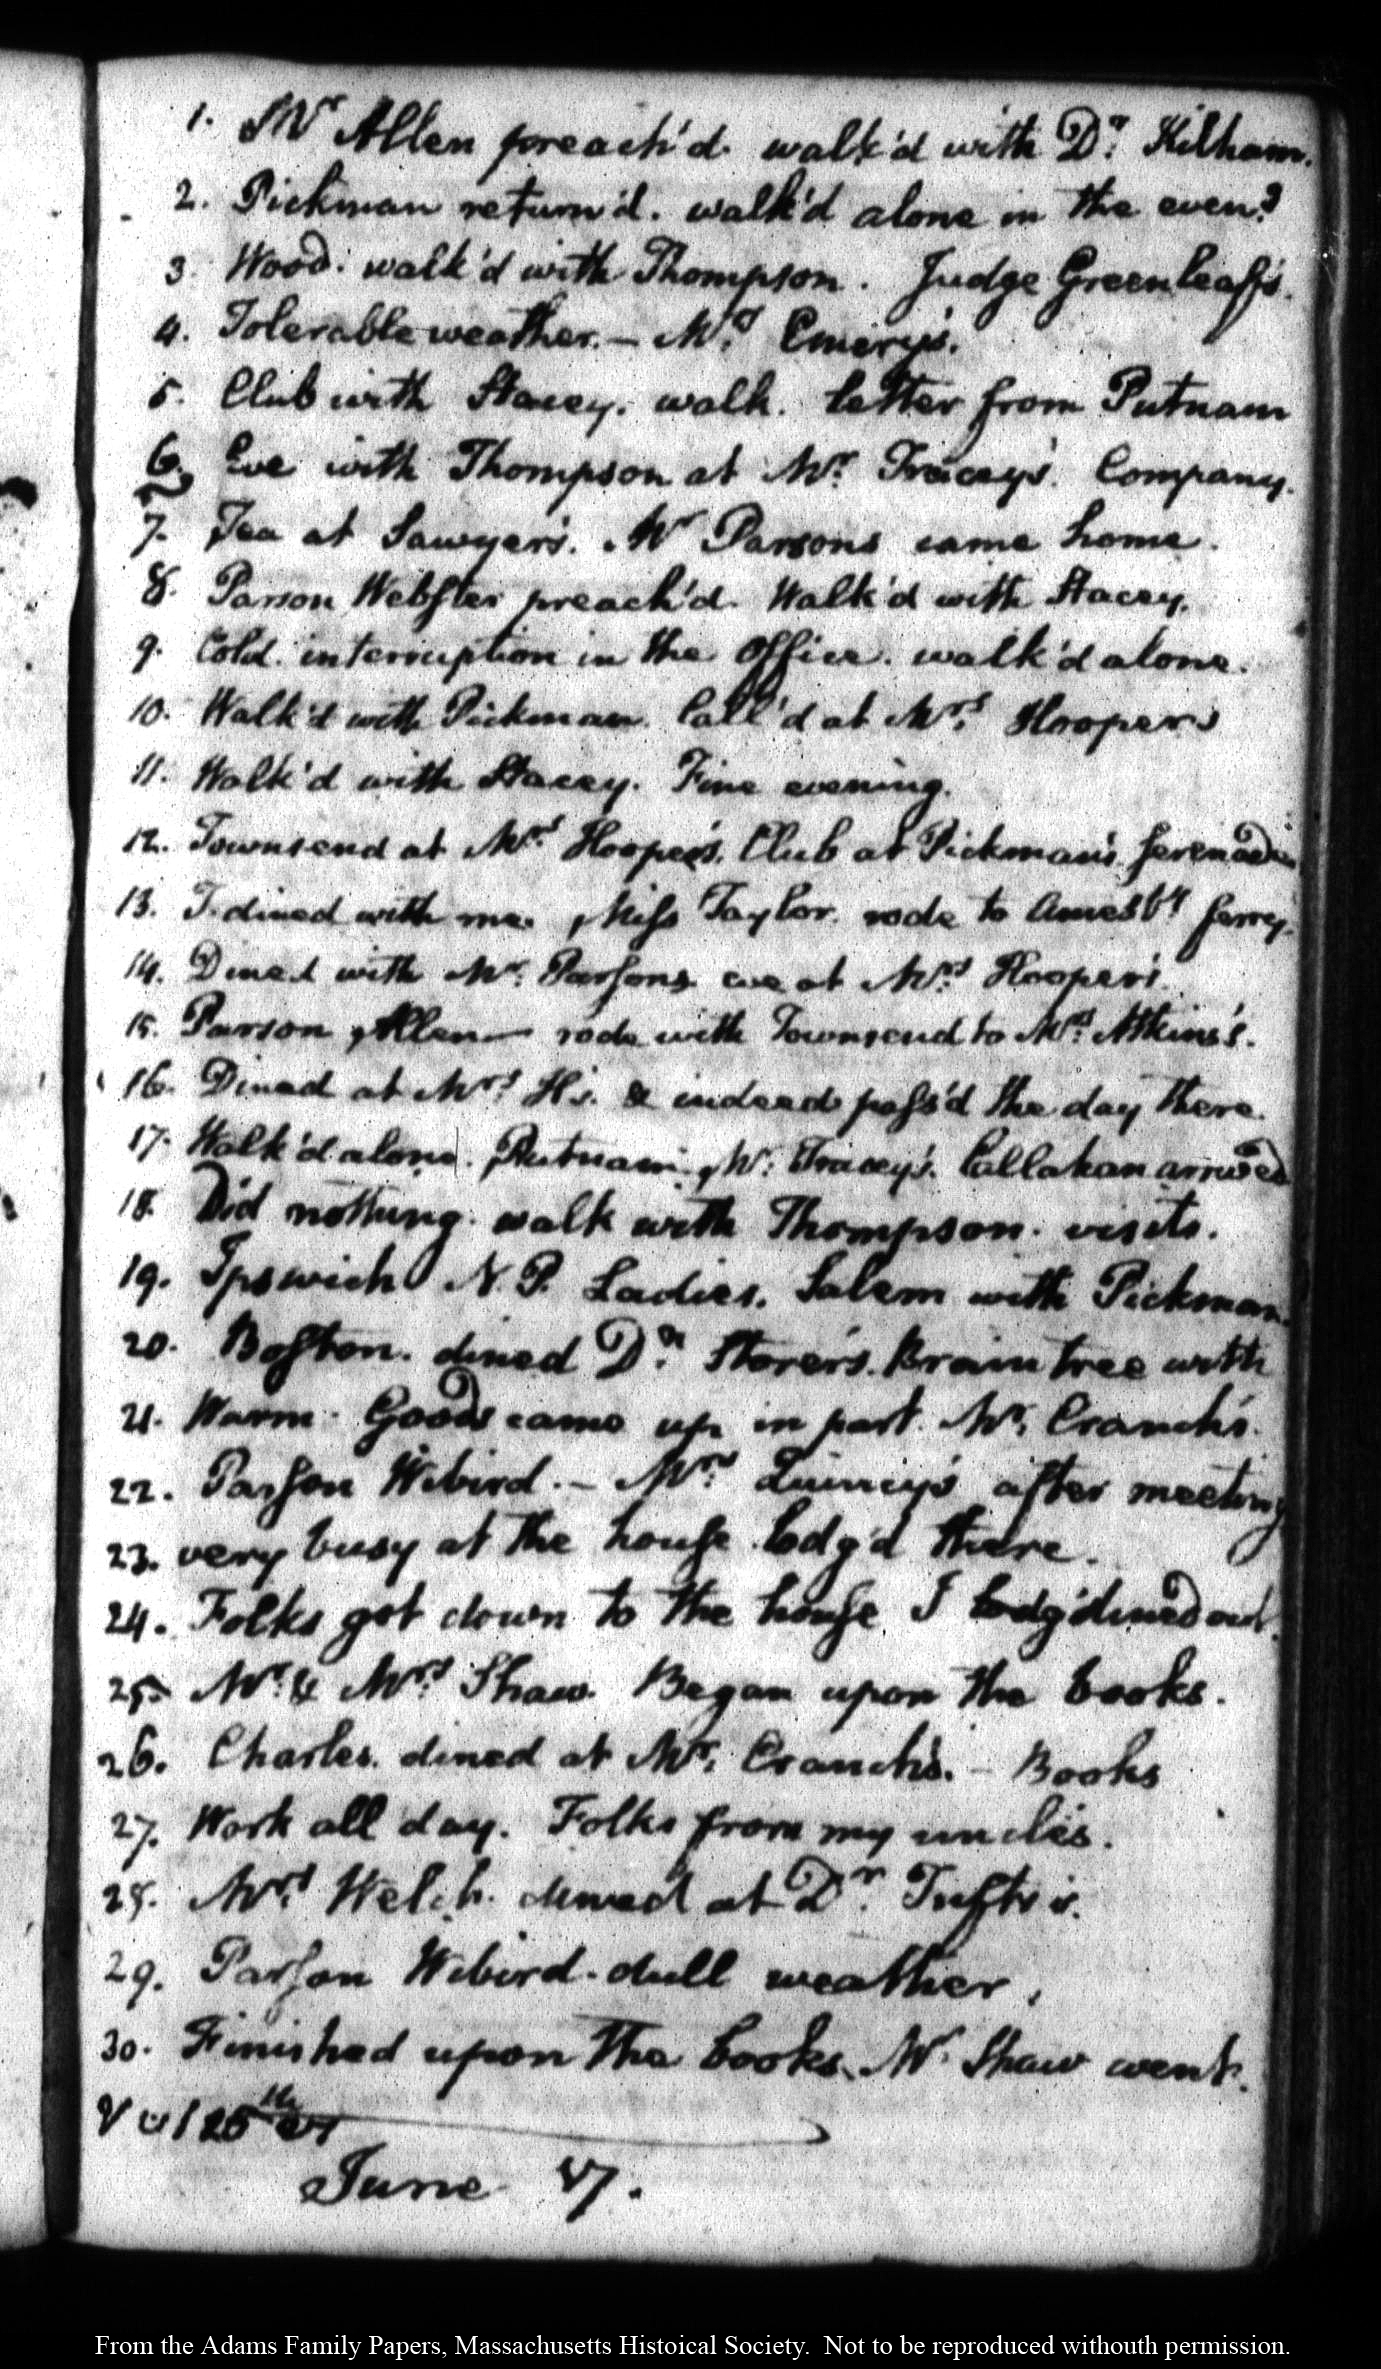 1. Mr. Allen preach'd. walk'd with Dr. Kilham.
2. Pickman return'd. walk'd alone in the eveng.
3. Wood. walk'd with Thompson. Judge Greenleaf's.
4. Tolerable weather. — Mrs. Emery's.
5. Club with Stacey. walk. letter from Putnam
6. Eve with Thompson at Mr. Tracey's. Company.
7. Tea at Sawyer's. Mr Parsons came home.
8. Parson Webster preach'd. Walk'd with Stacey.
9. Cold. interruption in the Office. walk'd alone.
10. Walk'd with Pickman. Call'd at Mrs. Hooper's
11. Walk'd with Stacey. Fine evening.
12. Townsend at Mrs. Hooper's. Club at Pickman's. serenading
13. T. dined with me. Miss Taylor. rode to Amesby ferry.
14. Dined with Mr. Parsons. eve at Mrs. Hooper's.
15. Parson Allen — rode with Townsend to Mrs. Atkins's.
16. Dined at Mrs. H's. & indeed pass'd the day there.
17. Walk'd alone. Putnam. Mr. Tracey's. Callahan arrived
18. Did nothing. walk with Thompson. visits.
19. Ipswich N. P. Ladies. Salem with Pickman.
20. Boston. dined Dn. Storer's. Braintree with
21. Warm. Goods came up in part. Mr. Cranch's.
22. Parson Wibird. — Mrs. Quincy's after meeting
23. very busy at the house. lodg'd there.
24. Folks got down to the house I lodg'd dined out.
25. Mr. & Mrs. Shaw. Began upon the books.
26. Charles. dined at Mr. Cranch's. — Books
27. Work all day. Folks from my uncle's.
28. Mrs. Welch. dined at Dr. Tufts's.
29. Parson Wibird. dull weather.
30. Finished upon the books. Mr. Shaw went.
June 87.
From the Adams Family Papers, Massachusetts Histoical Society. Not to be reproduced withouth permission.